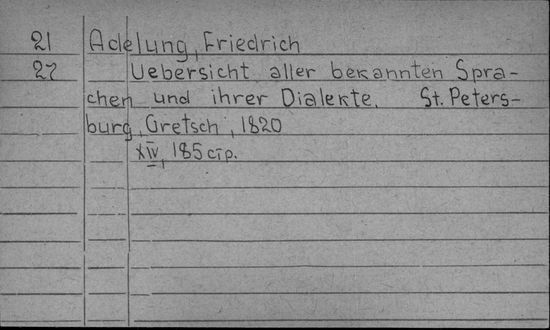 21 Adelung, Friedrich
27 Uebersicht aller bekannten Spra-
chen und ihrer Dialekte. St. Peters-
burg, Gretsch, 1820
XIV, 185 стр.